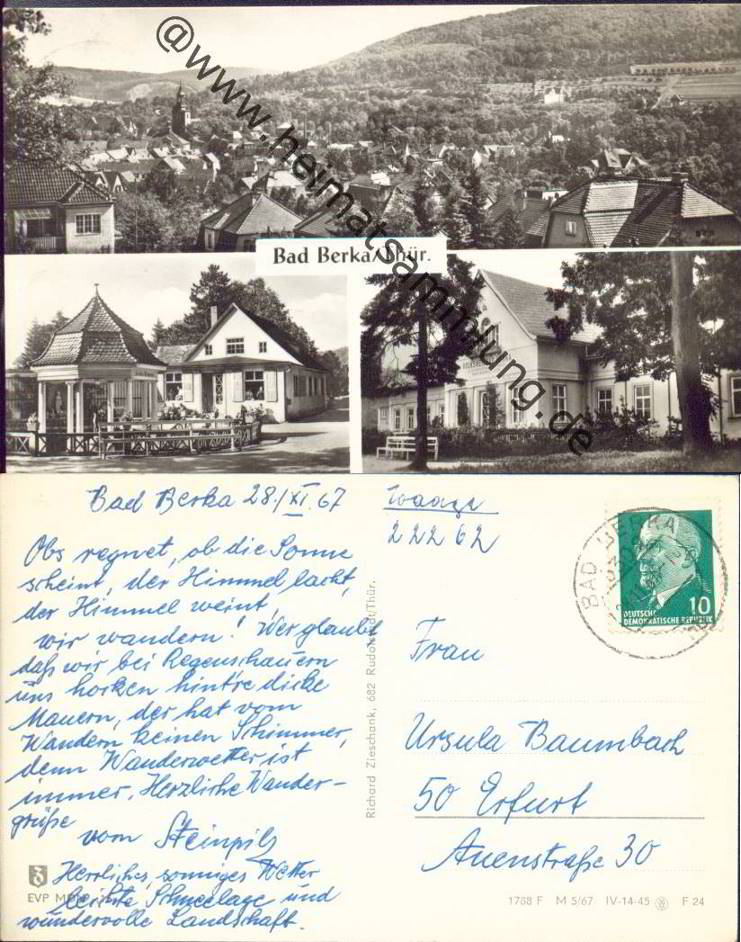 @www.heimatsammlung.de
Bad Berka/Thür.
Bad Berka 28./XI.67
Obs regnet, ob die Sonne
scheint, der Himmel lacht,
der Himmel weint,
wir wandern! Wer glaubt
daß wir bei Regenschauern
uns hocken hint're dicke
Mauern, der hat vom
Wandern keinen Schimmer,
denn Wanderwetter ist
immer. Herzliche Wander-
grüße
vom Steinpilz
Herrliches, sonniges Wetter
leichte Schneelage und
wundervolle Landschaft.
EVP M
Richard Zieschank, 682 Rudolstadt/Thür.
Waage
22262
BAD BERKA
10
DEUTSCHE
DEMOKRATISCHE REPUBLIK
Frau
Ursula Baumbach
50 Erfurt
Auenstraße 30
1788 F M 5/67 IV-14-45 F 24